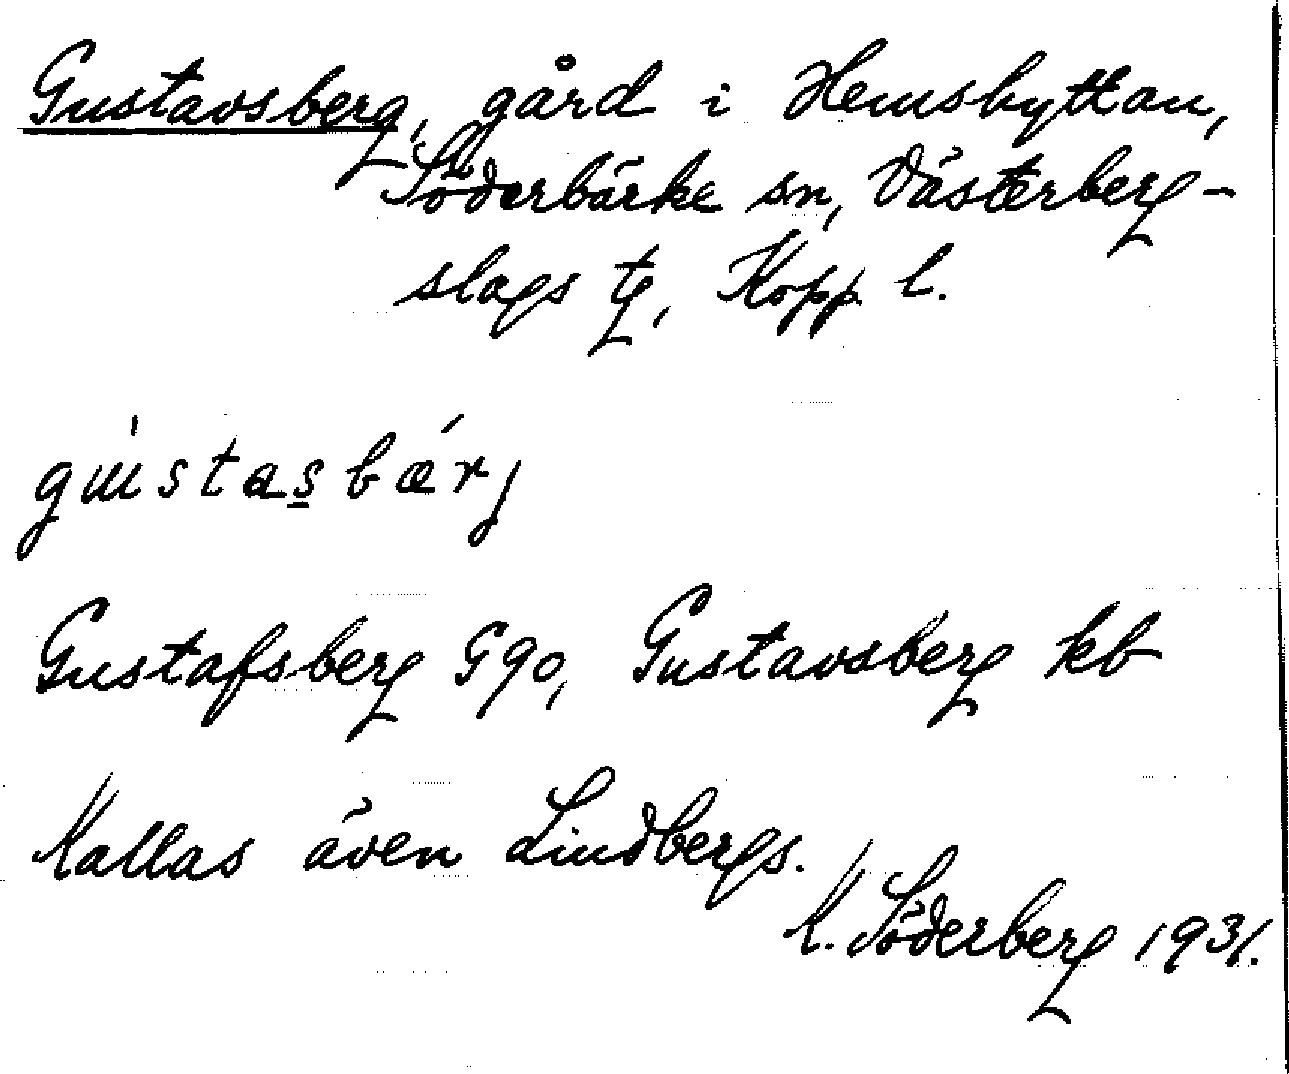 Gustavsberg, gård i Hemshyttan,
Söderbärke sn, Västerberg-
slags tg, Kopp l.
gɯ̀stasbǽrj
Gustafsberg G90, Gustavsberg kb
Kallas även Lindbergs.
K. Söderberg 1931.